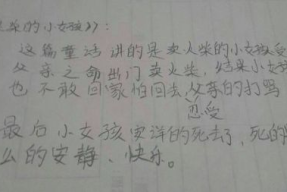 柴的小女孩》:
这篇童话讲的是卖火柴的小女孩受
父亲之命出门卖火柴,结果小女孩
也不敢回家怕回去父亲的打骂
忍受
最后小女孩安详的死去了,死的
么的安静、快乐。